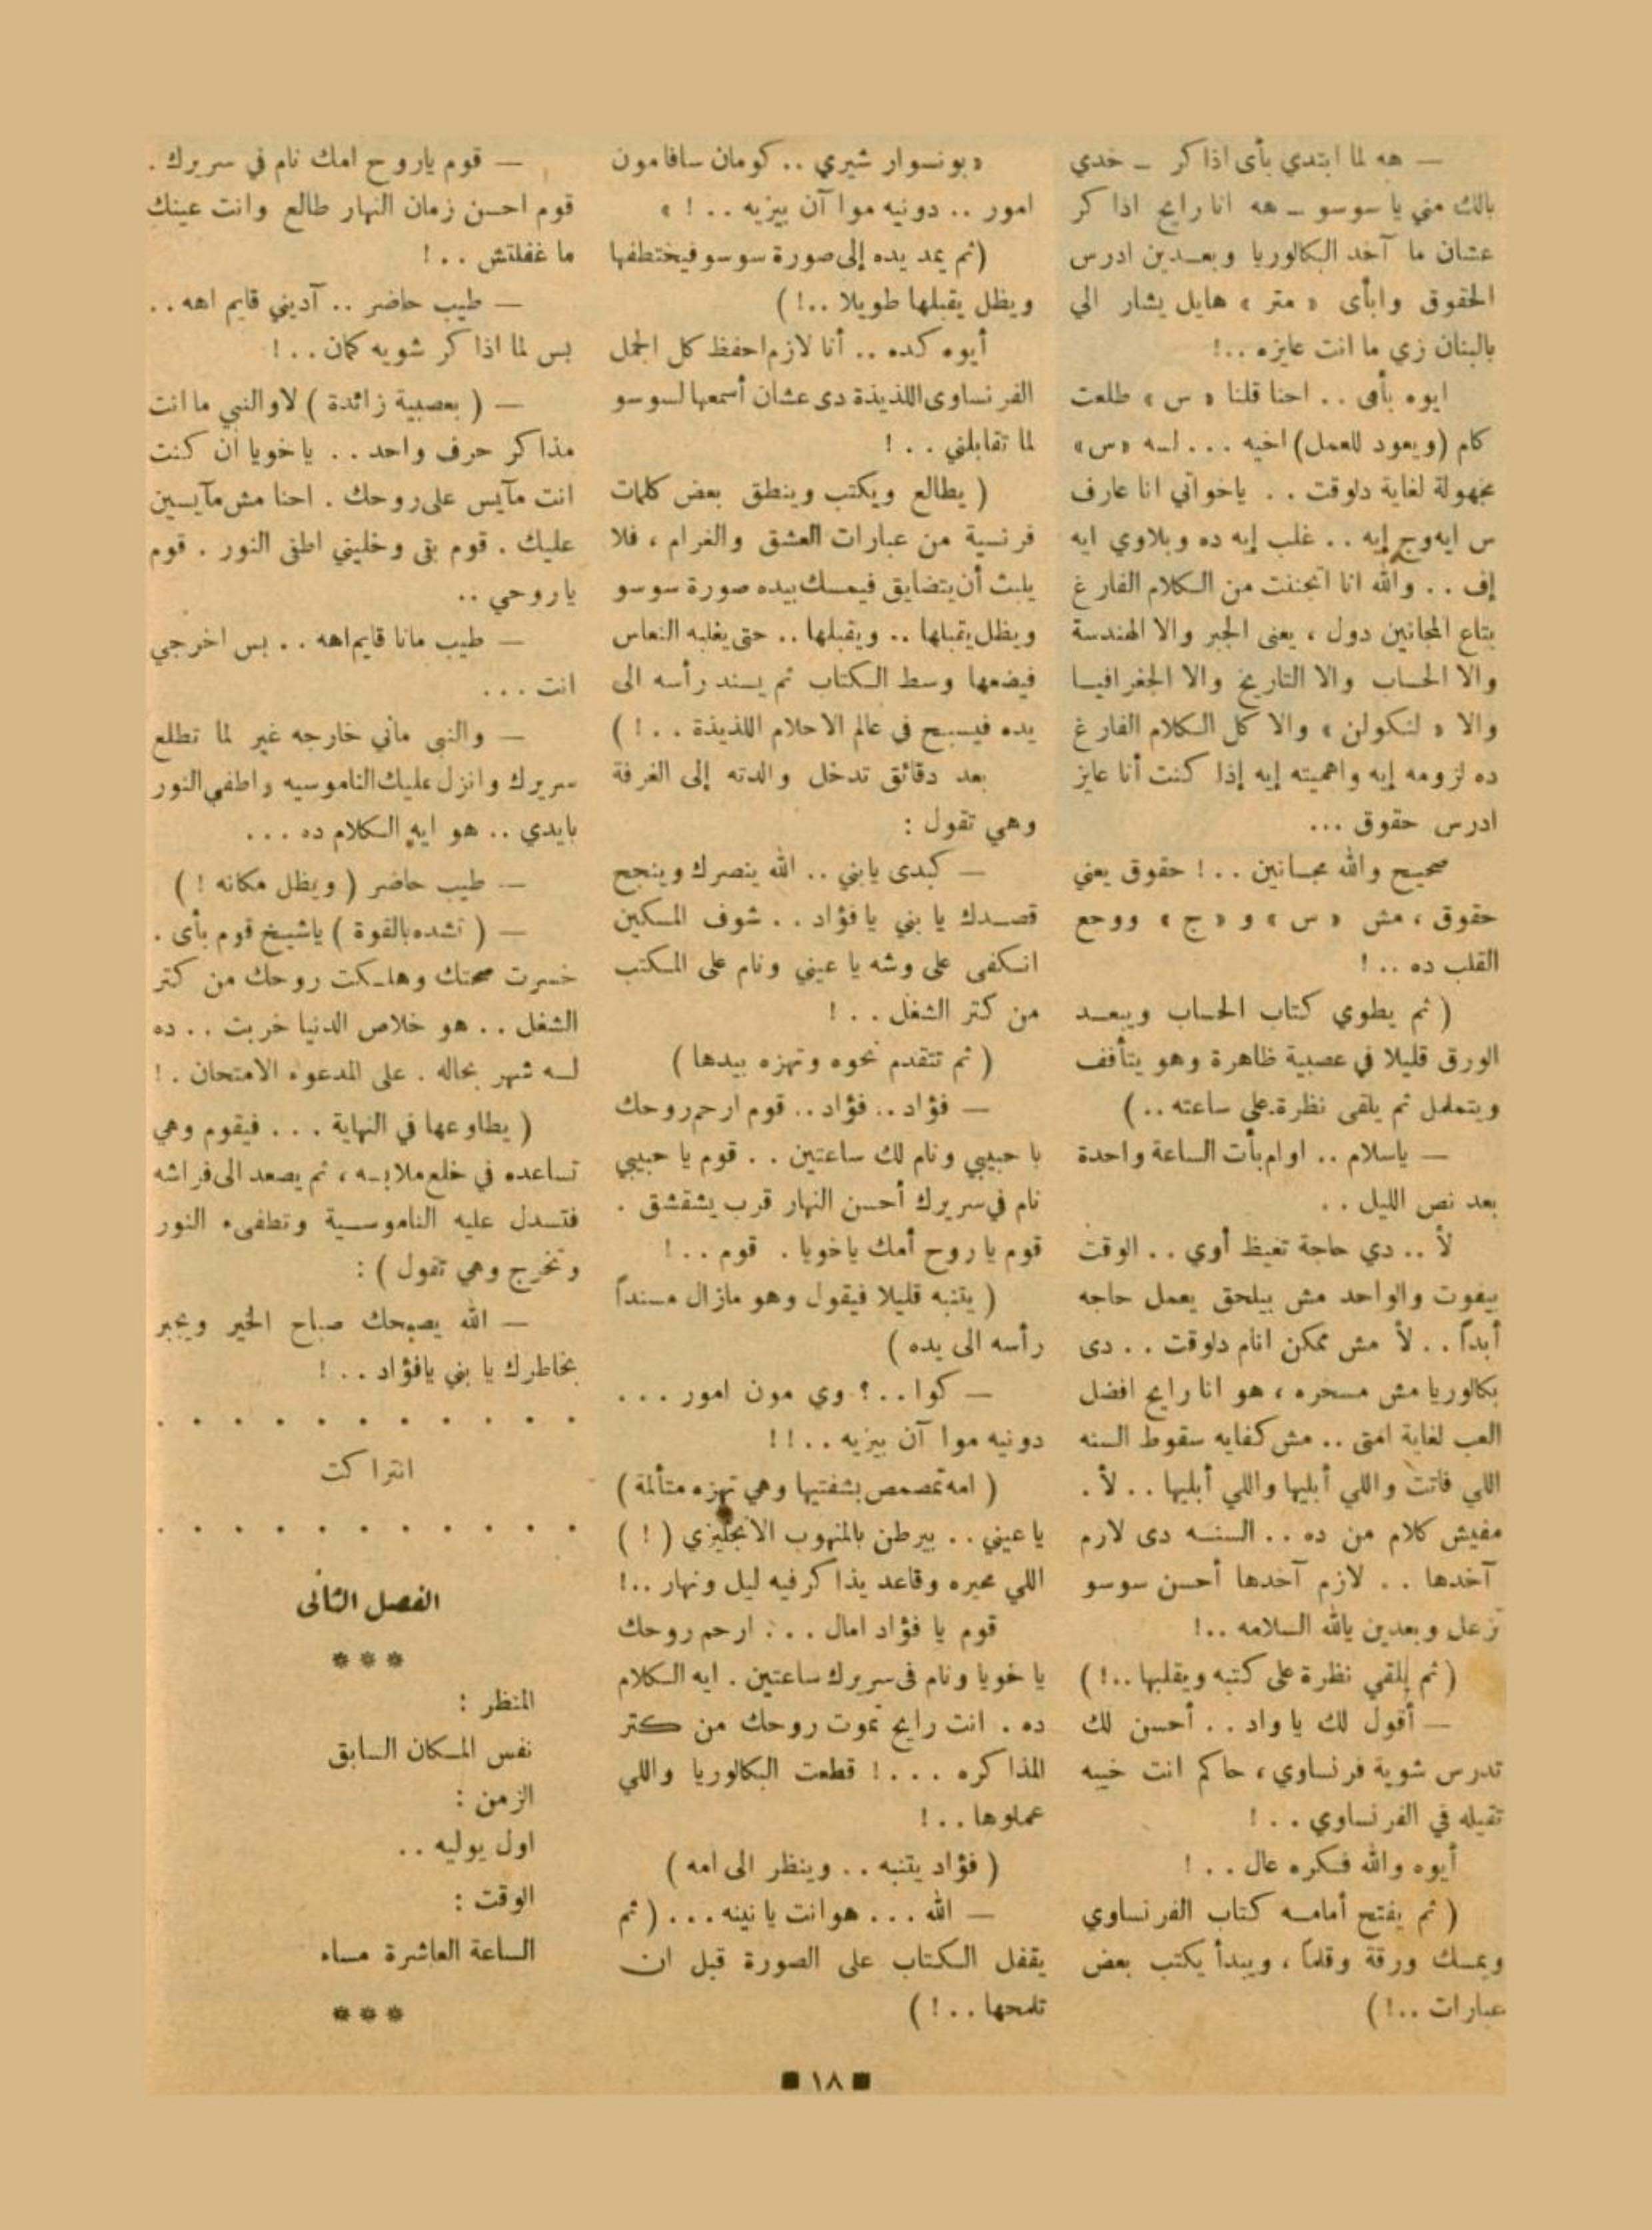 — هه لما ابتدي بأى اذاكر — خدي
بالك مني يا سوسو — هه انا رايح اذاكر
عشان ما آخد البكالوريا وبعدين ادرس
الحقوق وابأى « متر » هايل يشار الي
بالبنان زي ما انت عايزه ..!
ايوه بأى .. احنا قلنا « س » طلعت
كام (ويعود للعمل) اخيه ... لسه «س»
مجهولة لغاية دلوقت .. ياخواتي انا عارف
س ايه وج إيه .. غلب إيه ده وبلاوي ايه
إف .. والله انا اتجننت من الكلام الفارغ
بتاع المجانين دول ، يعنى الجبر والا الهندسة
والا الحساب والا التاريخ والا الجغرافيا
والا « لنكولن » والا كل الكلام الفارغ
ده لزومه إيه واهميته إيه إذا كنت أنا عايز
ادرس حقوق ...
صحيح والله مجانين ..! حقوق يعني
حقوق ، مش « س » و « ج » ووجع
القلب ده ..!
( ثم يطوي كتاب الحساب ويبعد
الورق قليلا في عصبية ظاهرة وهو يتأفف
ويتململ ثم يلقى نظرة على ساعته ..)
— ياسلام .. اوام بأت الساعة واحدة
بعد نص الليل ..
لأ .. دي حاجة تغيظ أوي .. الوقت
بيفوت والواحد مش بيلحق يعمل حاجه
أبداً .. لأ مش ممكن انام دلوقت .. دى
بكالوريا مش مسخره ، هو انا رايح افضل
العب لغاية امتى .. مش كفايه سقوط السنه
اللي فاتت واللي أبليها واللي أبليها .. لأ .
مفيش كلام من ده .. السنه دى لازم
آخدها .. لازم آخدها أحسن سوسو
تزعل وبعدين يالله السلامه ..!
( ثم يلقي نظرة على كتبه ويقلبها ..! )
— أقول لك يا واد .. أحسن لك
تدرس شوية فرنساوي ، حاكم انت خيبه
تقيله في الفرنساوي ..!
أيوه والله فكره عال ..!
( ثم يفتح أمامه كتاب الفرنساوي
ويمسك ورقة وقلماً ، ويبدأ يكتب بعض
عبارات ..! )
« بونسوار شيري .. كومان سافا مون
امور .. دونيه موا آن بيزيه ..! »
(ثم يمد يده إلى صورة سوسو فيختطفها
ويظل يقبلها طويلا ..! )
أيوه كده .. أنا لازم احفظ كل الجمل
الفرنساوى اللذيذة دى عشان أسمعها لسوسو
لما تقابلني ..!
( يطالع ويكتب وينطق بعض كلمات
فرنسية من عبارات العشق والغرام ، فلا
يلبث أن يتضايق فيمسك بيده صورة سوسو
ويظل يقبلها .. ويقبلها .. حتى يغلبه النعاس
فيضعها وسط الكتاب ثم يسند رأسه الى
يده فيسبح في عالم الاحلام اللذيذة ..! )
بعد دقائق تدخل والدته إلى الغرفة
وهي تقول :
— كبدى يابني .. الله ينصرك وينجح
قصدك يا بني يا فؤاد .. شوف المسكين
انكفى على وشه يا عيني ونام على المكتب
من كتر الشغل ..!
( ثم تتقدم نحوه وتهزه بيدها )
— فؤاد .. فؤاد .. قوم ارحم روحك
يا حبيبي ونام لك ساعتين .. قوم يا حبيبي
نام في سريرك أحسن النهار قرب يشقشق .
قوم يا روح أمك ياخويا . قوم ..!
( يتنبه قليلا فيقول وهو مازال مسنداً
رأسه الى يده )
— كوا ..؟ وي مون امور ...
دونيه موا آن بيزيه ..!!
( امه تمصمص بشفتيها وهي تهزه متألمة )
يا عيني .. بيرطن بالمنهوب الانجليزي ( ! )
اللي محيره وقاعد يذاكر فيه ليل ونهار ..!
قوم يا فؤاد امال ... ارحم روحك
يا خويا ونام فى سريرك ساعتين . ايه الكلام
ده . انت رايح تموت روحك من كتر
المذاكره ...! قطعت البكالوريا واللي
عملوها ..!
( فؤاد يتنبه .. وينظر الى امه )
— الله ... هو انت يا نينه ... ( ثم
يقفل الكتاب على الصورة قبل ان
تلمحها ..! )
— قوم ياروح امك نام في سريرك .
قوم احسن زمان النهار طالع وانت عينك
ما غفلتش ..!
— طيب حاضر .. آديني قايم اهه ..
بس لما اذاكر شويه كمان ..!
— ( بعصبية زائدة ) لاوالنبي ما انت
مذاكر حرف واحد .. يا خويا ان كنت
انت مآيس على روحك . احنا مش مآيسين
عليك . قوم بقى وخليني اطفى النور . قوم
ياروحي ..
— طيب مانا قايم اهه .. بس اخرجي
انت ...
— والنبى ماني خارجه غير لما تطلع
سريرك وانزل عليك الناموسيه واطفي النور
بايدي .. هو ايه الكلام ده ...
— طيب حاضر ( ويظل مكانه ! )
— ( تشده بالقوة ) ياشيخ قوم بأى .
خسرت صحتك وهلكت روحك من كتر
الشغل .. هو خلاص الدنيا خربت .. ده
لسه شهر بحاله . على المدعوء الامتحان .!
( يطاوعها في النهاية ... فيقوم وهي
تساعده في خلع ملابسه ، ثم يصعد الى فراشه
فتسدل عليه الناموسية وتطفىء النور
وتخرج وهي تقول ) :
— الله يصبحك صباح الخير ويجبر
بخاطرك يا بني يافؤاد ..!
. . . . . . . . . . .
انتراكت
. . . . . . . . . . .
الفصل الثانى
***
المنظر :
نفس المكان السابق
الزمن :
اول يوليه ..
الوقت :
الساعة العاشرة مساء
***
■ ١٨ ■